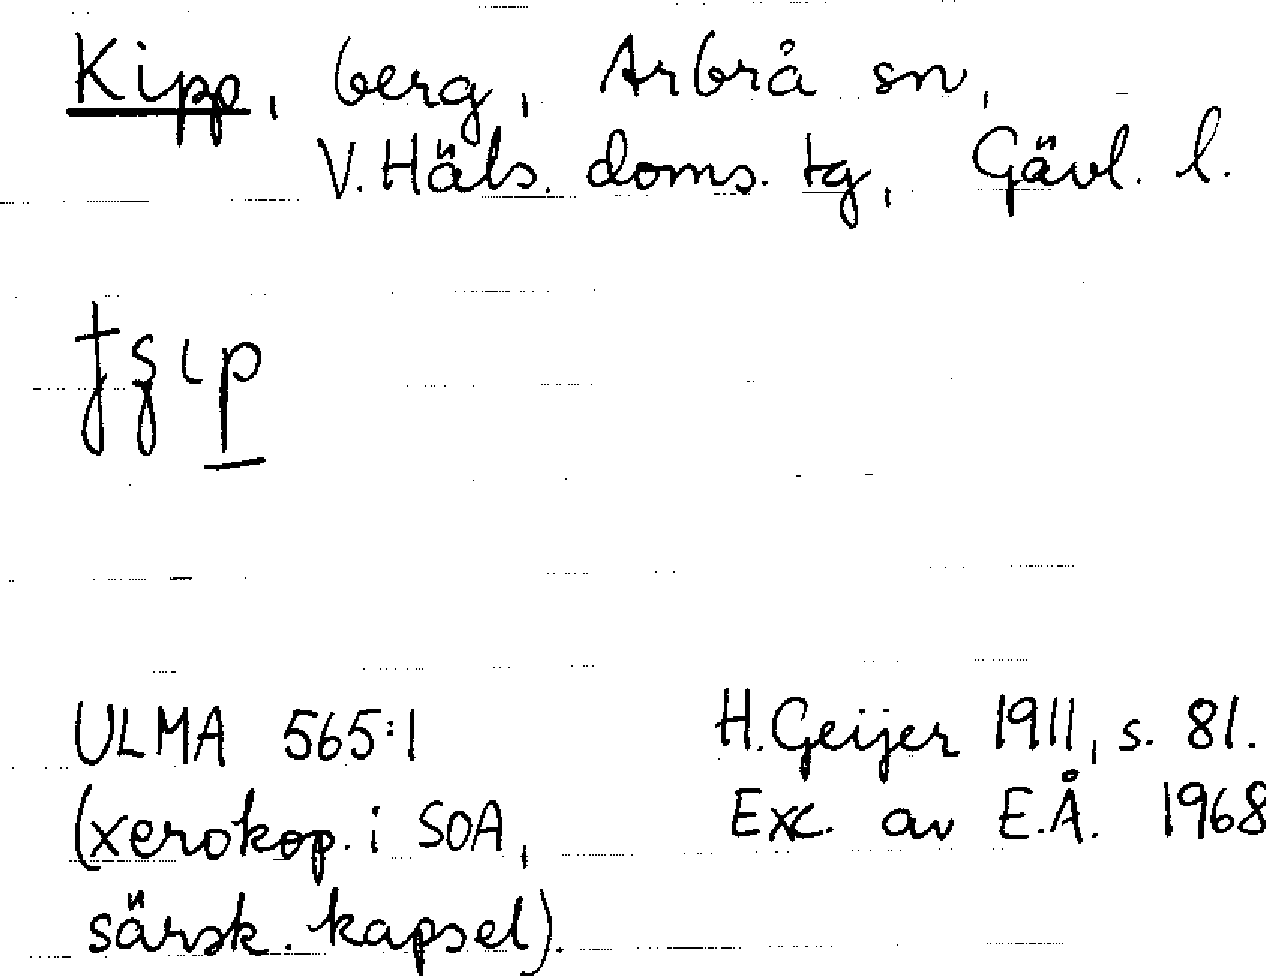 Kipp, berg, Arbrå sn,
V. Häls. doms. tg, Gävl. l.
ULMA 565:1
(xerokop. i SOA,
särsk. kapsel).
H. Geijer 1911, s. 81.
Exc. av E.Å. 1968